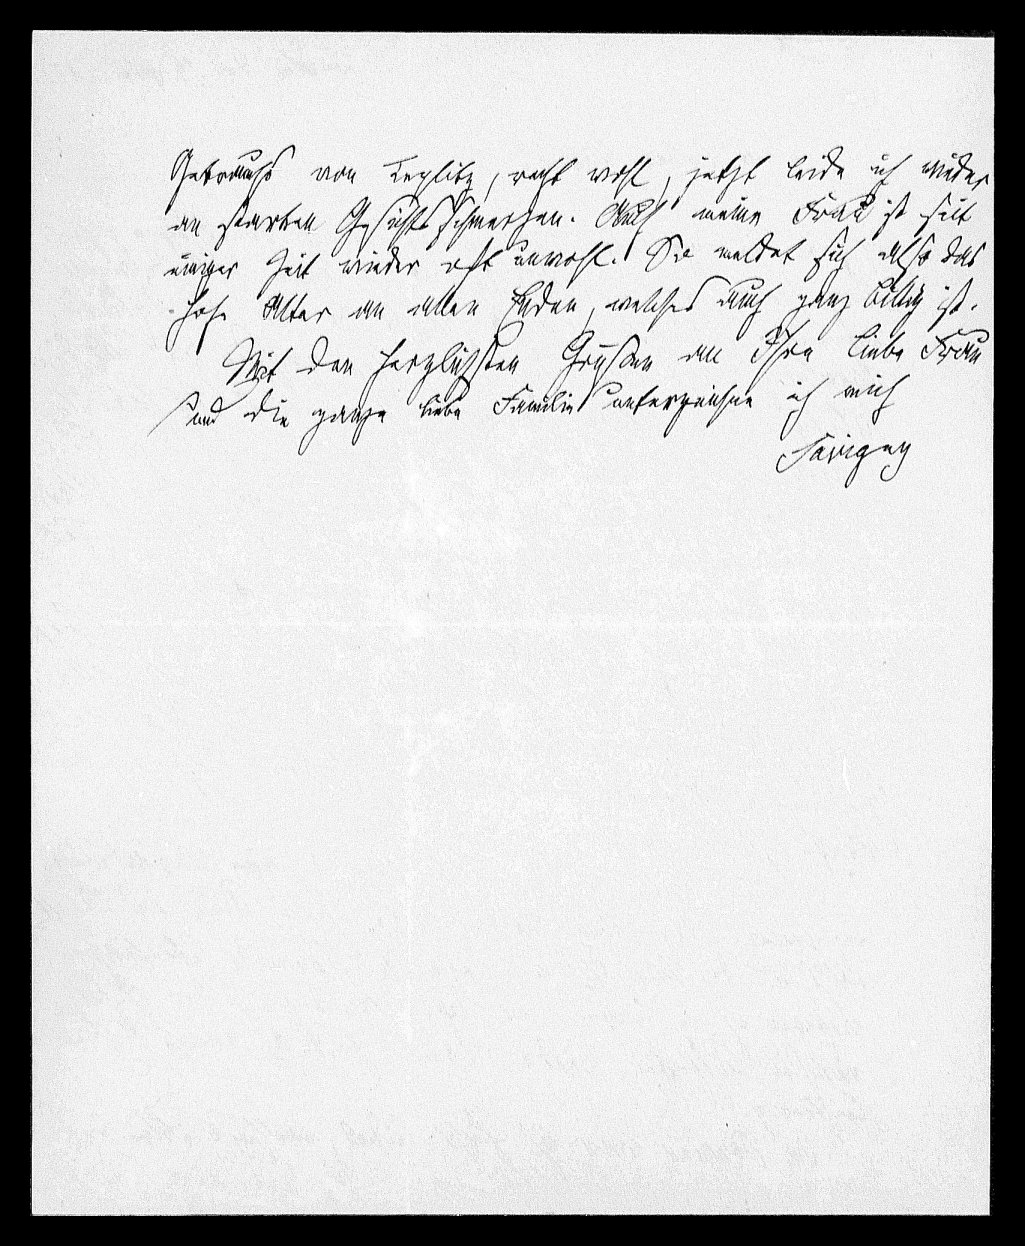 Gebrauchs von Teplitz, recht wohl, jetzt leide ich wieder
an starken Gesichtsschmerzen. Auch meine Frau ist seit
einiger Zeit wieder oft unwohl. So meldet sich also das
hohe Alter an allen Enden, welches auch ganz billig ist.
Mit den herzlichsten Grüßen an Ihre liebe Frau
und die ganze liebe Familie unterzeichne ich mich
Savigny